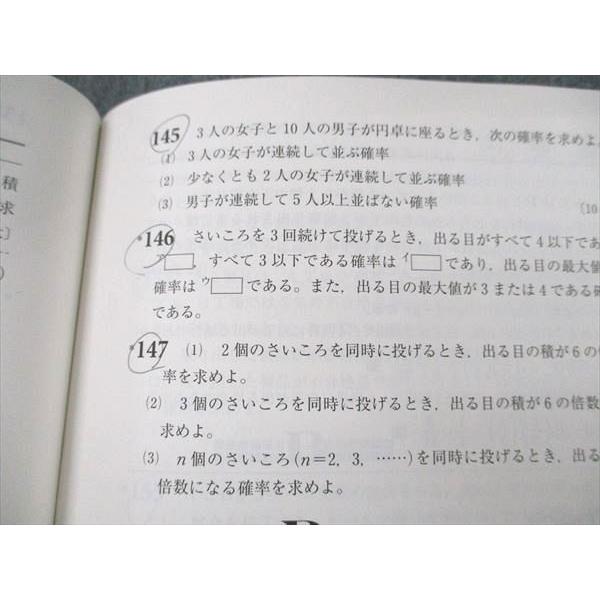 積
求
145 3人の女子と10人の男子が円卓に座るとき，次の確率を求めよ．
(1) 3人の女子が連続して並ぶ確率
(2) 少なくとも2人の女子が連続して並ぶ確率
(3) 男子が連続して5人以上並ばない確率
〔10
*146 さいころを3回続けて投げるとき，出る目がすべて4以下であ
ア□，すべて3以下である確率は イ□であり，出る目の最大値
確率は ウ□である。また，出る目の最大値が3または4である確
である。
*147 (1) 2個のさいころを同時に投げるとき，出る目の積が6の倍
率を求めよ。
(2) 3個のさいころを同時に投げるとき，出る目の積が6の倍数
求めよ。
(3) n個のさいころ(n=2，3，……)を同時に投げるとき，出る
倍数になる確率を求めよ。